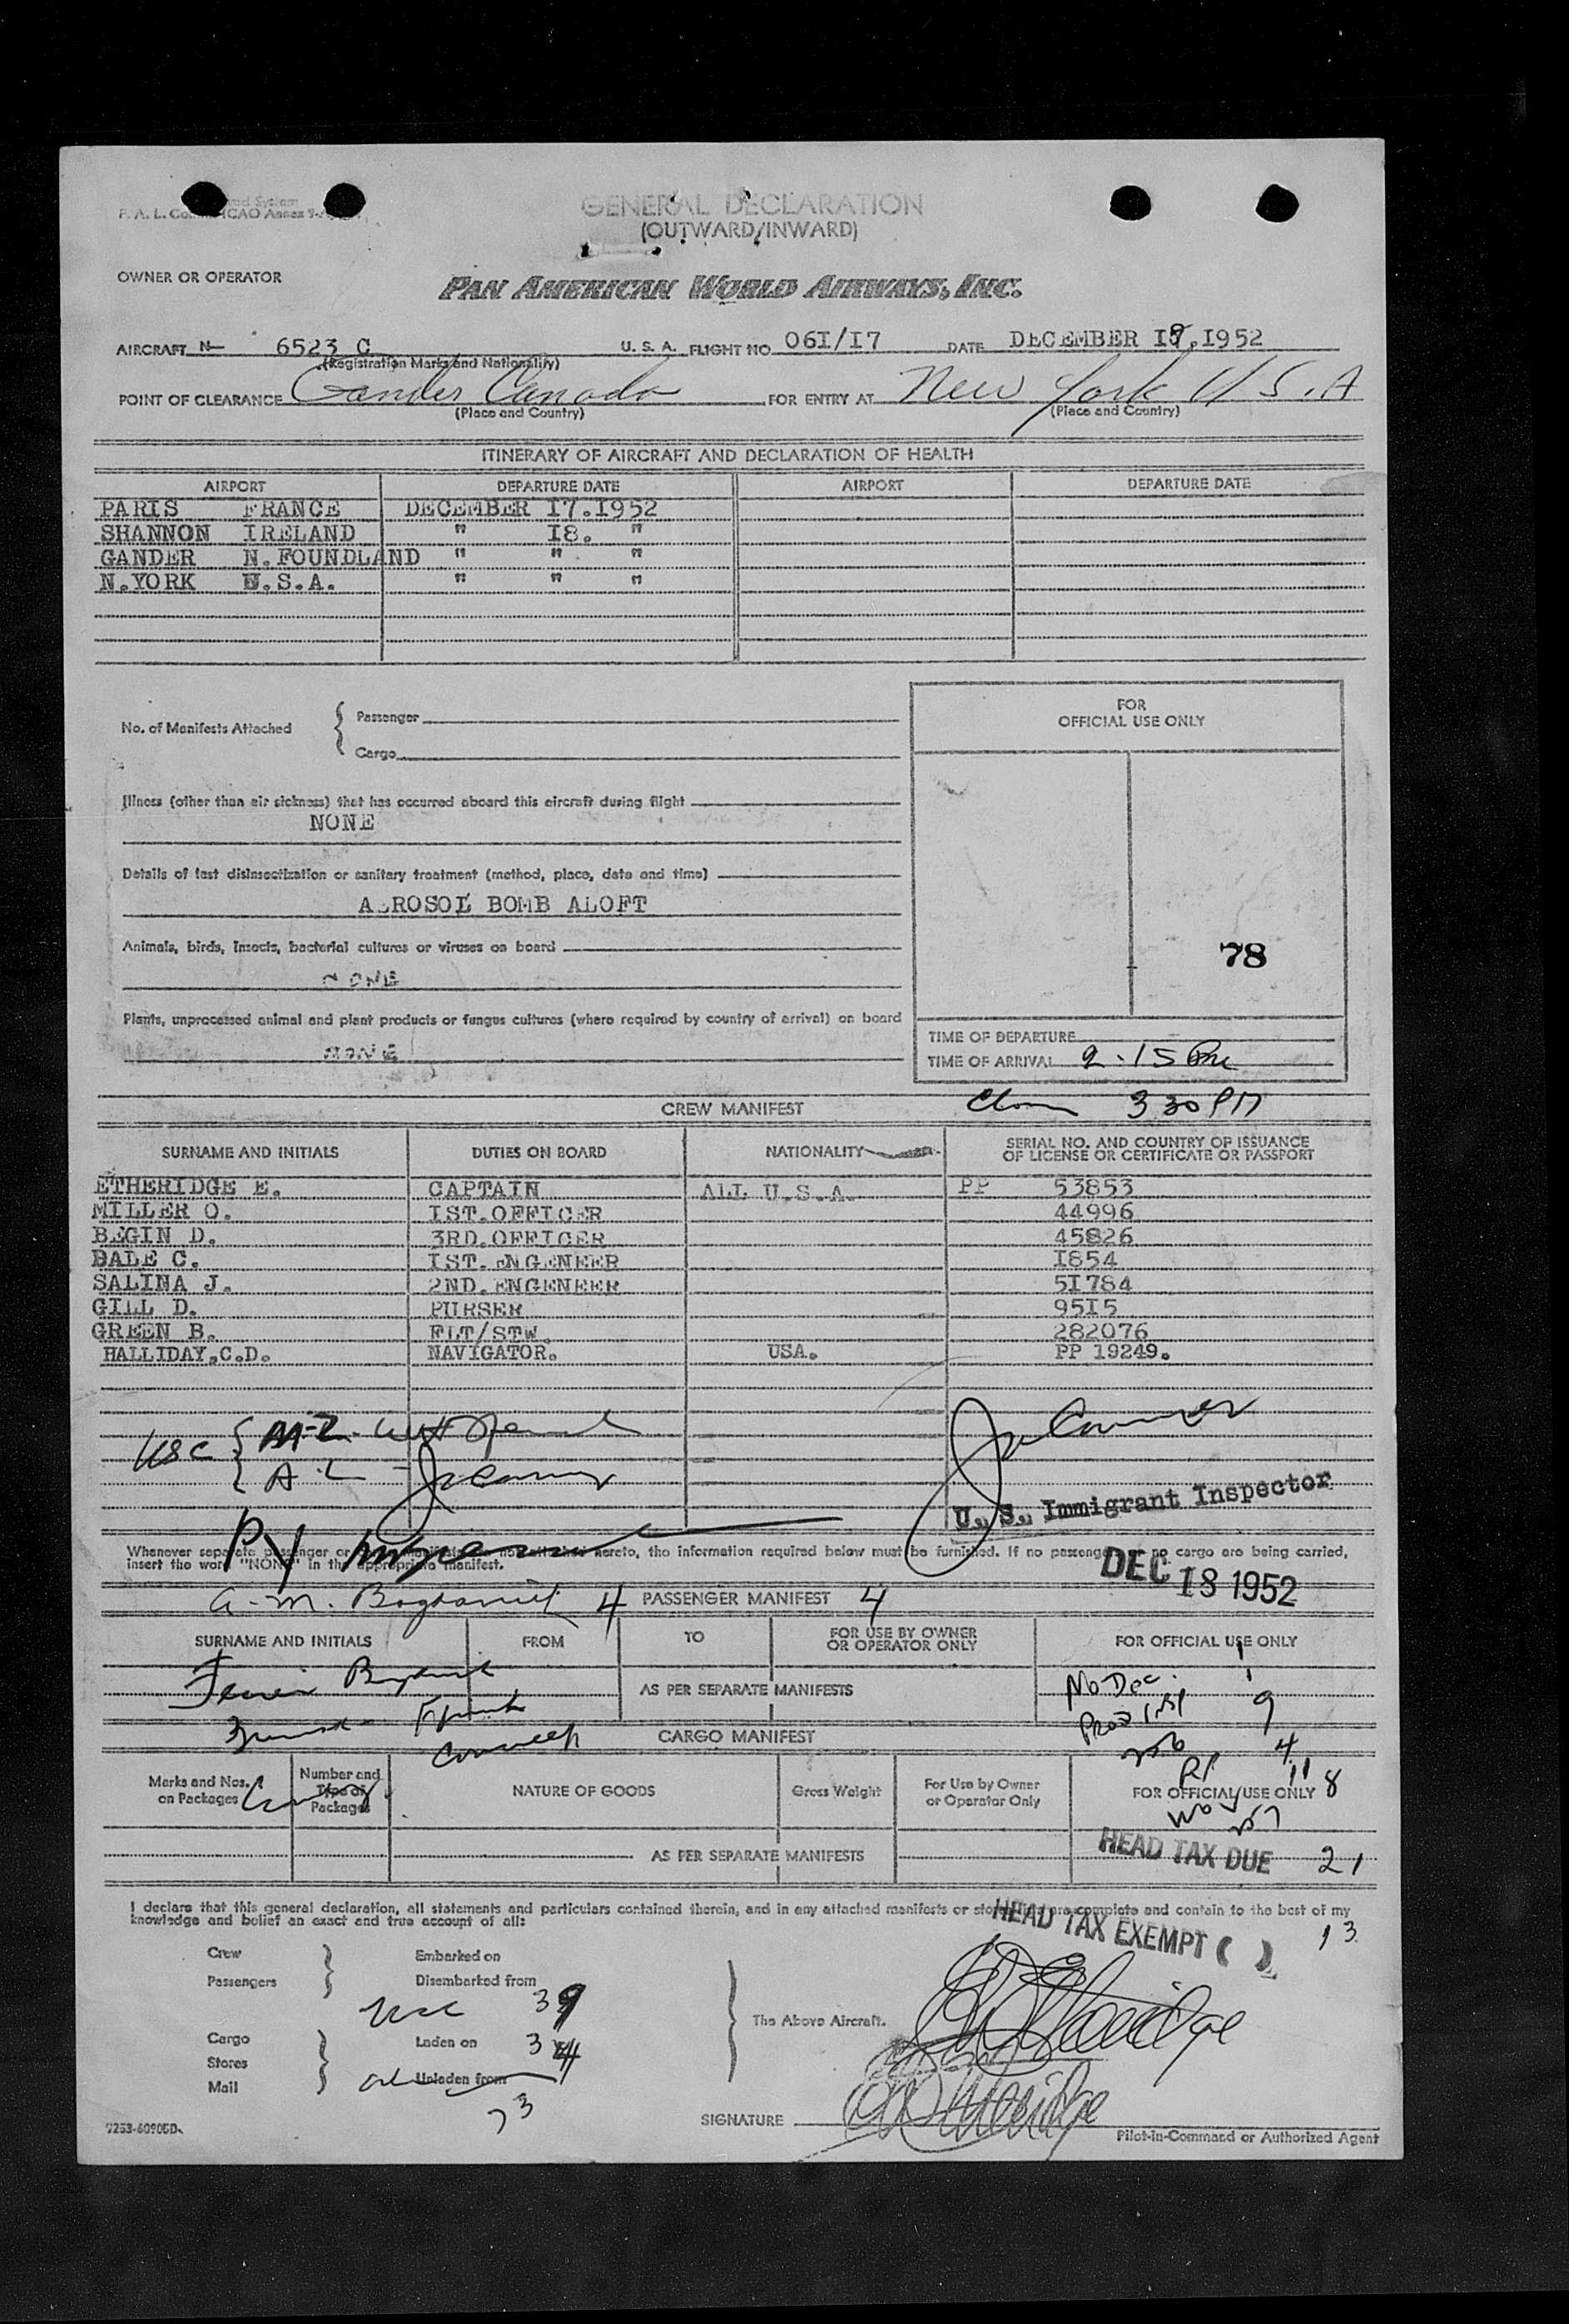 GENERAL DECLARATION
(OUTWARD/INWARD)
OWNER OR OPERATOR PAN AMERICAN WORLD AIRWAYS, INC.
AIRCRAFT N- 6523 C U. S. A. FLIGHT NO 06I/I7 DATE DECEMBER I8.I952
(Registration Marks and Nationality)
POINT OF CLEARANCE Gander Canada FOR ENTRY AT New York U.S.A
(Place and Country) (Place and Country)
ITINERARY OF AIRCRAFT AND DECLARATION OF HEALTH
AIRPORT DEPARTURE DATE AIRPORT DEPARTURE DATE
PARIS FRANCE DECEMBER I7.I952
SHANNON IRELAND " I8. "
GANDER N.FOUNDLAND " " "
N.YORK U.S.A. " " "
No. of Manifests Attached { Passenger
Cargo
FOR
OFFICIAL USE ONLY
Illness (other than air sickness) that has occurred aboard this aircraft during flight
NONE
Details of last disinsectization or sanitary treatment (method, place, date and time)
AEROSOL BOMB ALOFT
Animals, birds, insects, bacterial cultures or viruses on board
NONE
78
Plants, unprocessed animal and plant products or fungus cultures (where required by country of arrival) on board
NONE
TIME OF DEPARTURE
TIME OF ARRIVAL 2.15 Pm
CREW MANIFEST
3 30 PM
SURNAME AND INITIALS DUTIES ON BOARD NATIONALITY SERIAL NO. AND COUNTRY OF ISSUANCE
OF LICENSE OR CERTIFICATE OR PASSPORT
ETHERIDGE E. CAPTAIN ALL U.S.A. PP 53853
MILLER O. IST.OFFICER 44996
BEGIN D. 3RD.OFFICER 45826
DALE C. IST.ENGENEER I854
SALINA J. 2ND.ENGENEER 5I784
GILL D. PURSER 95I5
GREEN B. FLT/STW. 282076
HALLIDAY,C.D. NAVIGATOR. USA. PP 19249.
USC
A.L
U. S. Immigrant Inspector
Whenever separate passenger or manifests are not attached hereto, the information required below must be furnished. If no passengers or no cargo are being carried,
insert the word "NONE" in the appropriate manifest.
DEC 18 1952
A. M. 4 PASSENGER MANIFEST 4
SURNAME AND INITIALS FROM TO FOR USE BY OWNER
OR OPERATOR ONLY FOR OFFICIAL USE ONLY
AS PER SEPARATE MANIFESTS
No Dec. 1
9
CARGO MANIFEST
4
Marks and Nos.
on Packages Number and
Type of
Packages NATURE OF GOODS Gross Weight For Use by Owner
or Operator Only FOR OFFICIAL USE ONLY 8
AS PER SEPARATE MANIFESTS
HEAD TAX DUE 21
I declare that this general declaration, all statements and particulars contained therein, and in any attached manifests or stores lists are complete and contain to the best of my
knowledge and belief an exact and true account of all:
HEAD TAX EXEMPT ( ) 13
Crew Embarked on
Passengers Disembarked from
39
The Above Aircraft.
Cargo Laden on 34
Stores
Mail Unladen from
73
SIGNATURE
7253-60905D
Pilot-in-Command or Authorized Agent